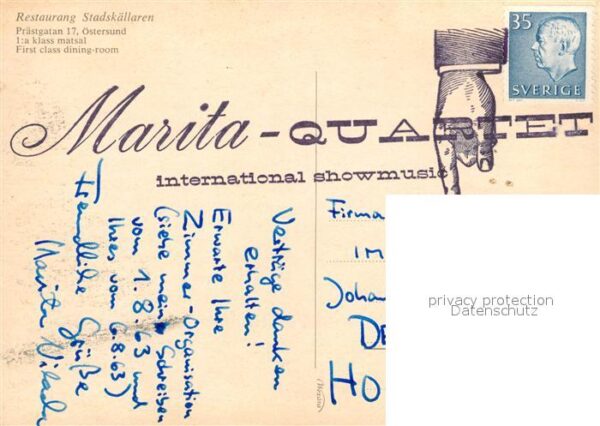 Restaurang Stadskällaren
Prästgatan 17, Östersund
1:a klass matsal
First class dining-room
35
SVERIGE
Marita-QUARTET
international showmusic
Verträge dankend
erhalten!
Erwarte Ihre
Zimmer-Organisation
(siehe mein Schreiben
vom 1.8.63 und
Ihres vom 6.8.63)
Freundliche Grüße
Marita
Firma
Im
Joha
DE
HO
privacy protection
Datenschutz